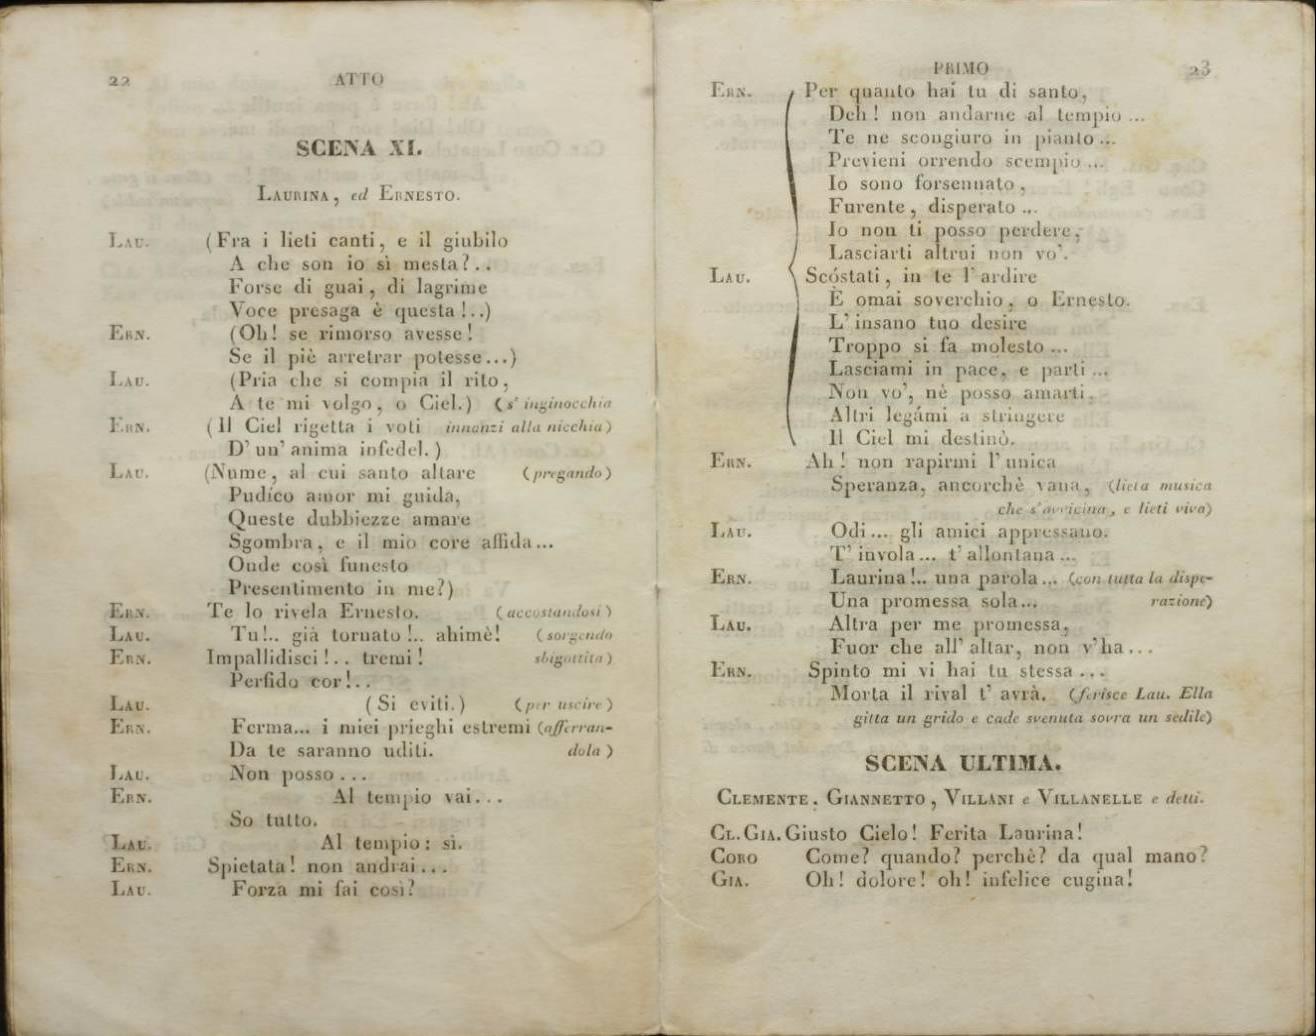 22 ATTO
SCENA XI.
LAURINA, ed ERNESTO.
LAU. (Fra i lieti canti, e il giubilo
A che son io sì mesta?..
Forse di guai, di lagrime
Voce presaga è questa!..)
ERN. (Oh! se rimorso avesse!
Se il piè arretrar potesse...)
LAU. (Pria che si compia il rito,
A te mi volgo, o Ciel.) (s' inginocchia
ERN. (Il Ciel rigetta i voti innanzi alla nicchia)
D' un' anima infedel.)
LAU. (Nume, al cui santo altare (pregando)
Pudíco amor mi guida,
Queste dubbiezze amare
Sgombra, e il mio core affida...
Onde così funesto
Presentimento in me?)
ERN. Te lo rivela Ernesto. (accostandosi)
LAU. Tu!.. già tornato!.. ahimè! (sorgendo
ERN. Impallidisci!.. tremi! sbigottita)
Perfido cor!..
LAU. (Si eviti.) (per uscire)
ERN. Ferma... i miei prieghi estremi (afferran-
Da te saranno uditi. dola)
LAU. Non posso...
ERN. Al tempio vai...
So tutto.
LAU. Al tempio: sì.
ERN. Spietata! non andrai...
LAU. Forza mi fai così?
PRIMO 23
ERN. Per quanto hai tu di santo,
Deh! non andarne al tempio...
Te ne scongiuro in pianto...
Previeni orrendo scempio...
Io sono forsennato,
Furente, disperato...
Io non ti posso perdere,
Lasciarti altrui non vo'.
LAU. Scóstati, in te l' ardire
È omai soverchio, o Ernesto.
L' insano tuo desire
Troppo si fa molesto...
Lasciami in pace, e parti...
Non vo', nè posso amarti,
Altri legámi a stringere
Il Ciel mi destinò.
ERN. Ah! non rapirmi l' unica
Speranza, ancorchè vana, (lieta musica
che s'avvicina, e lieti viva)
LAU. Odi... gli amici appressano.
T' invola... t' allontana...
ERN. Laurina!.. una parola... (con tutta la dispe-
Una promessa sola... razione)
LAU. Altra per me promessa,
Fuor che all' altar, non v'ha...
ERN. Spinto mi vi hai tu stessa...
Morta il rival t' avrà. (ferisce Lau. Ella
gitta un grido e cade svenuta sovra un sedile)
SCENA ULTIMA.
CLEMENTE, GIANNETTO, VILLANI e VILLANELLE e detti.
CL. GIA. Giusto Cielo! Ferita Laurina!
CORO Come? quando? perchè? da qual mano?
GIA. Oh! dolore! oh! infelice cugina!